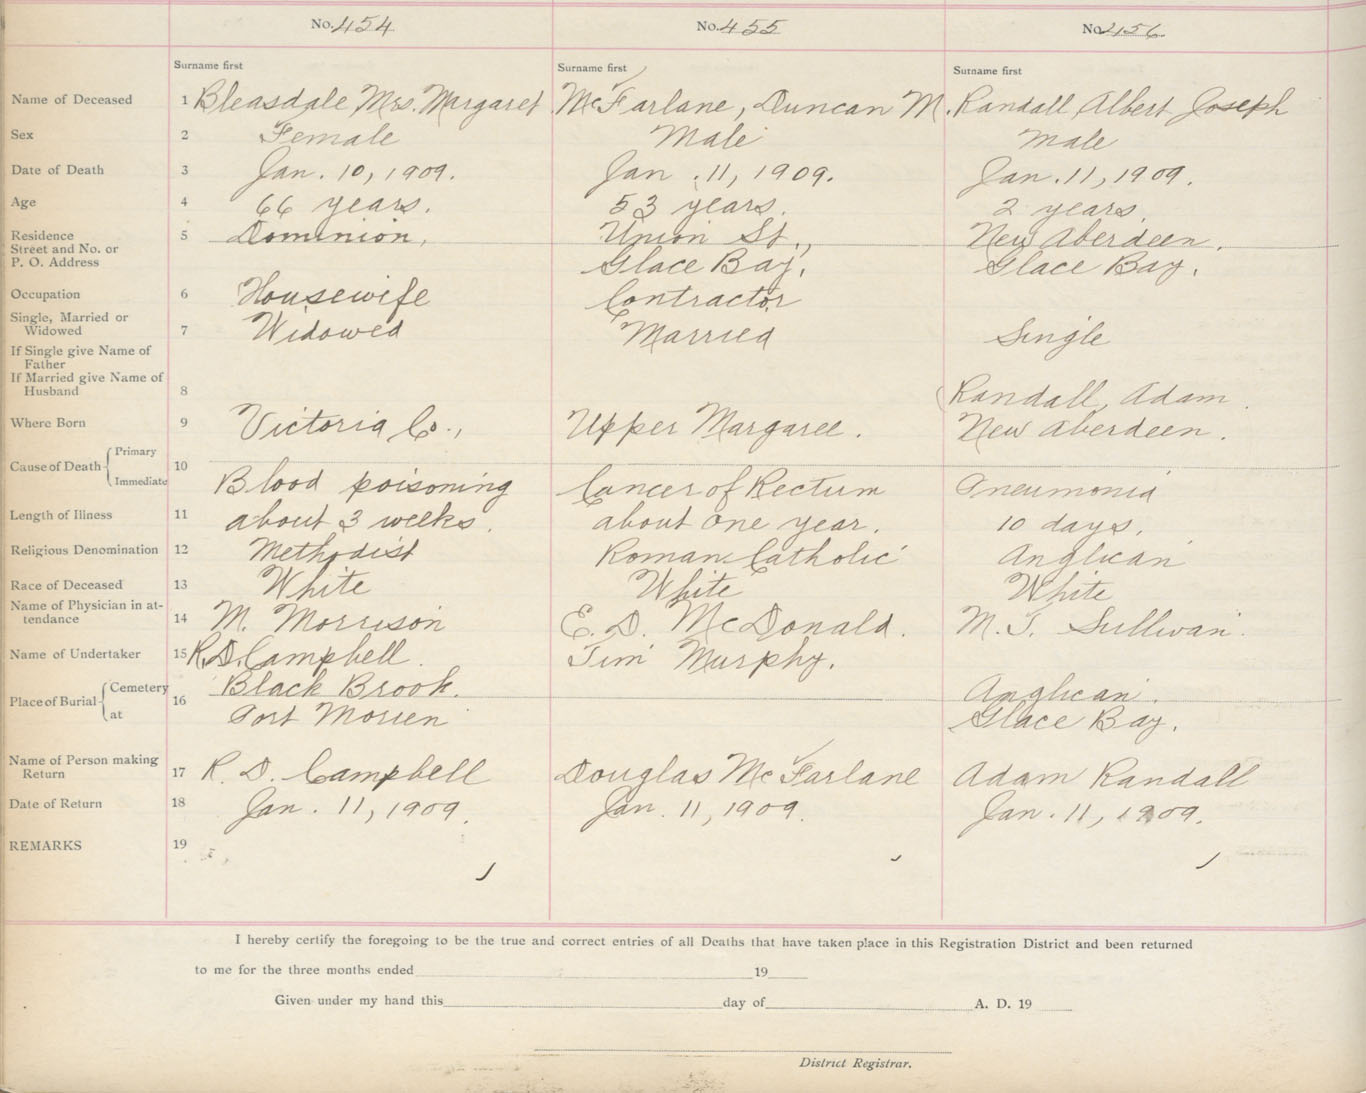 No. 454 No. 455 No. 456
Surname first Surname first Surname first
Name of Deceased 1 Bleasdale Mrs. Margaret McFarlane, Duncan M. Randall, Albert Joseph
Sex 2 Female Male Male
Date of Death 3 Jan. 10, 1909. Jan. 11, 1909. Jan. 11, 1909.
Age 4 66 years. 53 years. 2 years.
Residence 5 Dominion, Union St., New Aberdeen.
Street and No. or
P. O. Address Glace Bay. Glace Bay.
Occupation 6 Housewife Contractor
Single, Married or
Widowed 7 Widowed Married Single
If Single give Name of
Father
If Married give Name of
Husband 8 Randall, Adam.
Where Born 9 Victoria Co., Upper Margaree. New Aberdeen.
Cause of Death Primary
10
Immediate Blood poisoning Cancer of Rectum Pneumonia
Length of Illness 11 about 3 weeks. about one year. 10 days.
Religious Denomination 12 Methodist Roman Catholic Anglican
Race of Deceased 13 White White White
Name of Physician in at-
tendance 14 M. Morrison E. D. McDonald. M. T. Sullivan.
Name of Undertaker 15 R. D. Campbell. Jim Murphy.
Place of Burial Cemetery 16 Black Brook. Anglican.
at Port Morien Glace Bay.
Name of Person making
Return 17 R. D. Campbell Douglas McFarlane Adam Randall
Date of Return 18 Jan. 11, 1909. Jan. 11, 1909. Jan. 11, 1909.
REMARKS 19
I hereby certify the foregoing to be the true and correct entries of all Deaths that have taken place in this Registration District and been returned
to me for the three months ended 19
Given under my hand this day of A. D. 19
District Registrar.